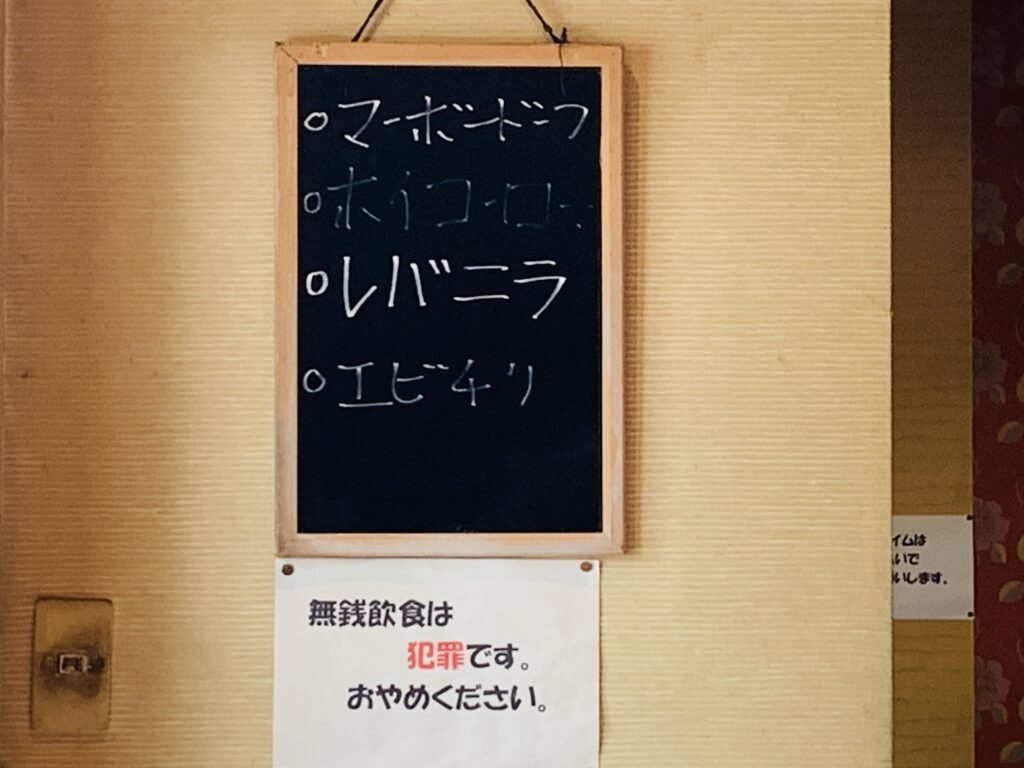 ○マーボードーフ
○ホイコーロー
○レバニラ
○エビチリ
無銭飲食は
犯罪です。
おやめください。
イムは
いで
いします。